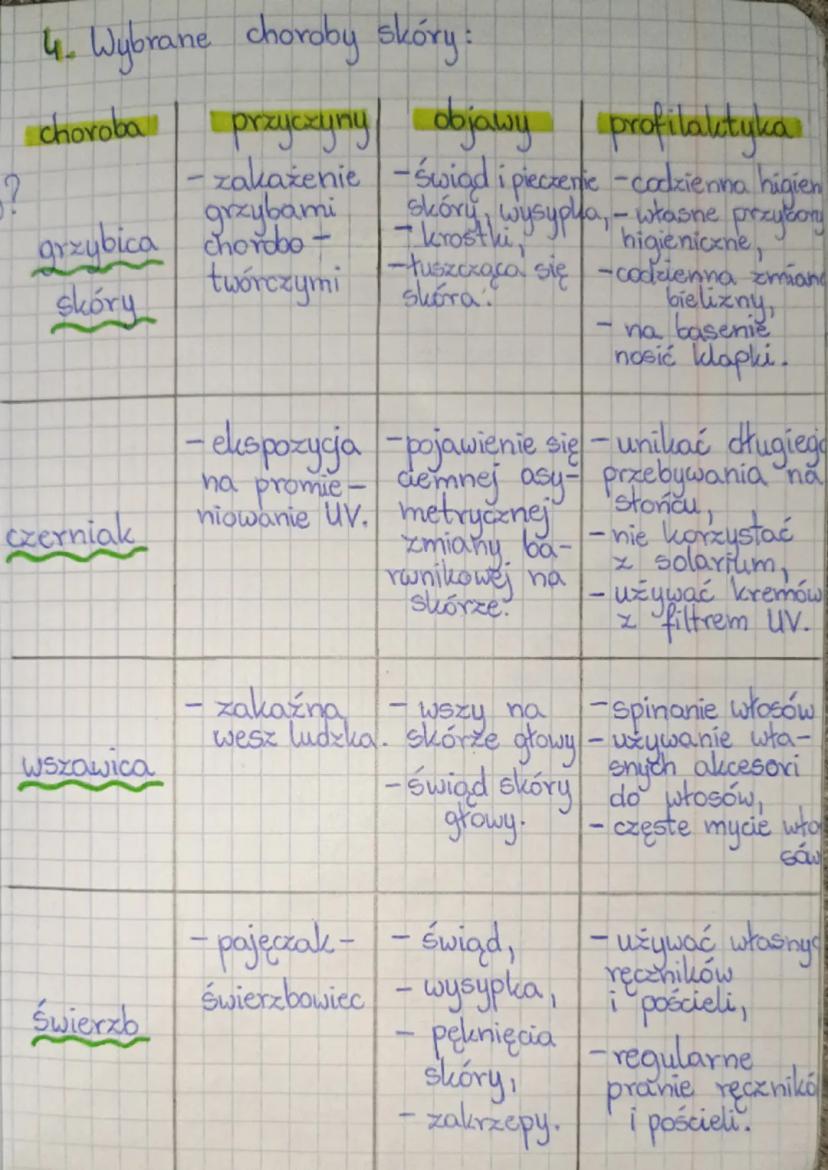 4. Wybrane choroby skóry:
choroba
przyczyny
objawy
profilaktyka
?
grzybica
skóry
- zakażenie
grzybami
chorobo-
twórczymi
- świąd i pieczenie
skóry, wysypka,
- krostki,
- łuszcząca się
skóra.
- codzienna higien
- własne przybory
higieniczne,
- codzienna zmian
bielizny,
- na basenie
nosić klapki.
czerniak
- ekspozycja
na promie-
niowanie UV.
- pojawienie się
ciemnej asy-
metrycznej
zmiany ba-
rwnikowej na
skórze.
- unikać długieg
przebywania na
słońcu,
- nie korzystać
z solarium,
- używać kremów
z filtrem UV.
wszawica
- zakaźna
wesz ludzka.
- wszy na
skórze głowy
- świąd skóry
głowy.
- spinanie włosów
- używanie wła-
snych akcesori
do włosów,
- częste mycie wło
sów
świerzb
- pajęczak-
świerzbowiec
- świąd,
- wysypka,
- pęknięcia
skóry,
- zakrzepy.
- używać własnyc
ręczników
i pościeli,
- regularne
pranie ręcznikó
i pościeli.